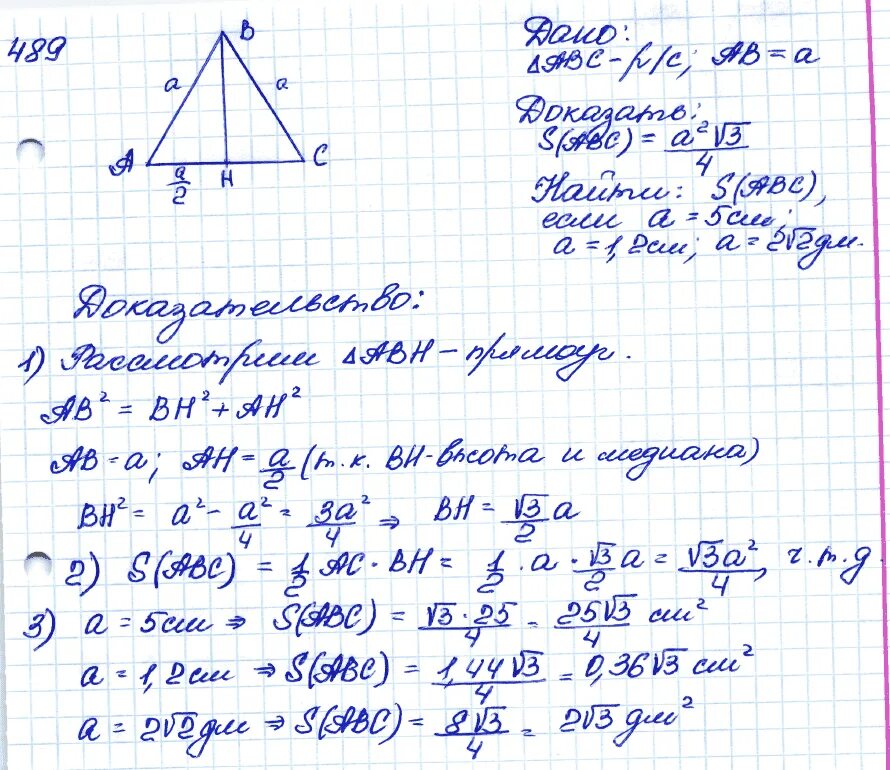 489
B
a
a
A
C
a/2
H
Дано:
△ABC – р/с; AB = a
Доказать:
S(ABC) = a²√3/4
Найти: S(ABC),
если a = 5см;
a = 1,2см; a = 2√2дм.
Доказательство:
1) Рассмотрим △ABH – прямоуг.
AB² = BH² + AH²
AB = a; AH = a/2 (т.к. BH – высота и медиана)
BH² = a² – a²/4 = 3a²/4 ⇒ BH = √3/2 a
2) S(ABC) = 1/2 AC · BH = 1/2 · a · √3/2 a = √3a²/4, ч.т.д.
3) a = 5см ⇒ S(ABC) = √3·25/4 = 25√3/4 см²
a = 1,2см ⇒ S(ABC) = 1,44√3/4 = 0,36√3 см²
a = 2√2дм ⇒ S(ABC) = 8√3/4 = 2√3 дм²